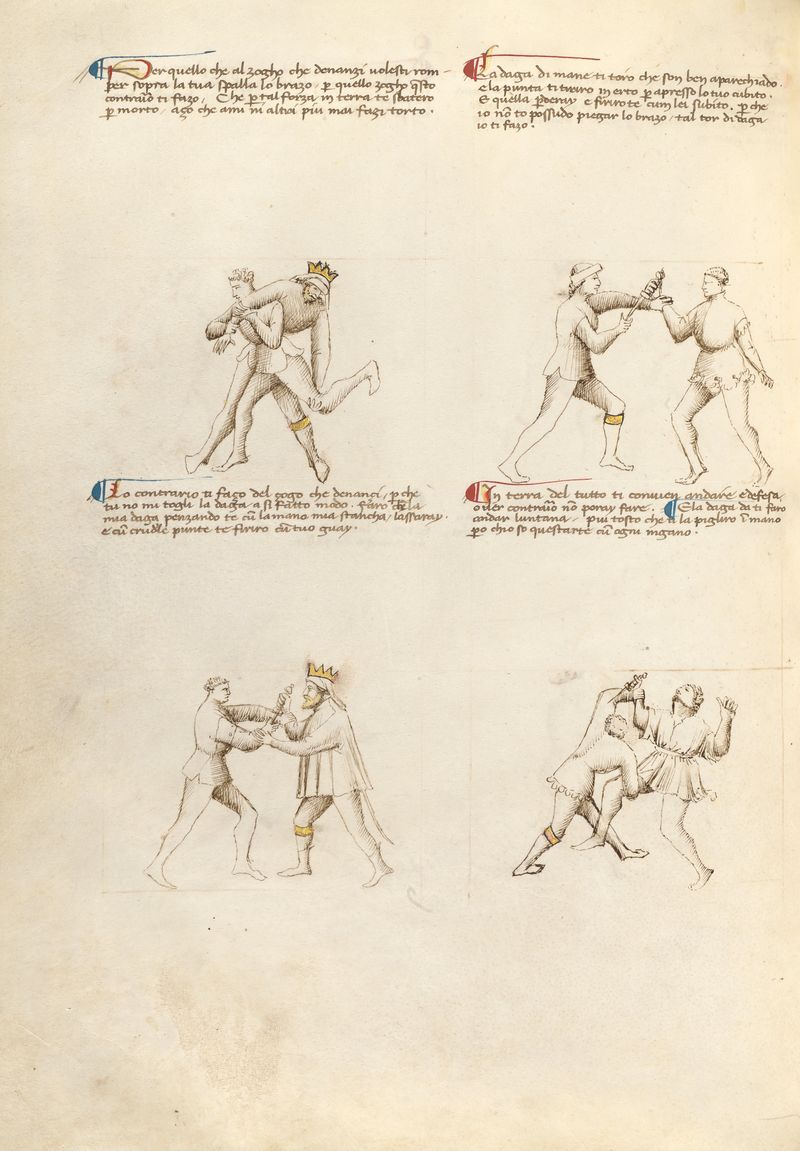 Per quello che al zogho che denanzi volesti rom-
per sopra la tua spalla lo brazo, p quello zogho q̃sto
contrario ti fazo, Che p tal forza in terra te sbatero
p morto, aço che a mi ni altroi più mai fazi torto.
La daga di mane ti toro che son ben aparechiado.
e la punta ti tirero in erto p apresso lo tuo cubito.
E quella p̃deray e firirote cum lei subito, p che
io nõ to possudo piegar lo brazo, tal tor di daga
io ti fazo.
Lo contrario ti faço del çogo che denanci, p che
tu no mi togli la daga a si fatto modo. Faro che la
mia daga penzando te cũ la mano mia stancha, lassaray.
e cũ crudele punte te firiro cũ tuo guay.
In terra del tutto ti convien andare e defesa,
over contrario nõ poray fare. E la daga da ti faro
andar luntana, piu tosto che ti la pigliro ĩ mano
p̃o chio so questarte cũ ogni ingano.